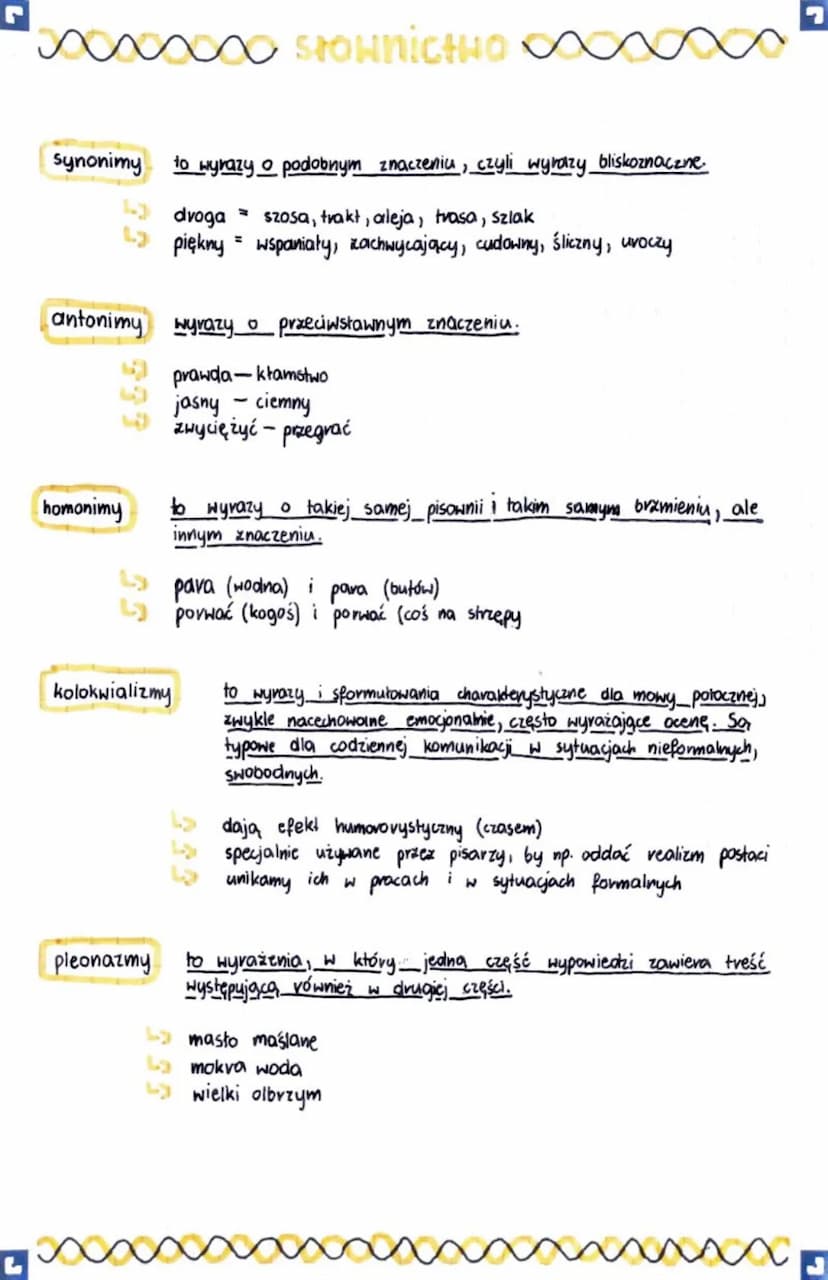 słownictwo
synonimy to wyrazy o podobnym znaczeniu, czyli wyrazy bliskoznaczne.
droga = szosa, trakt, aleja, trasa, szlak
piękny = wspaniały, zachwycający, cudowny, śliczny, uroczy
antonimy wyrazy o przeciwstawnym znaczeniu.
prawda – kłamstwo
jasny – ciemny
zwyciężyć – przegrać
homonimy to wyrazy o takiej samej pisownii i takim samym brzmieniu, ale
innym znaczeniu.
para (wodna) i para (butów)
porwać (kogoś) i porwać (coś na strzępy
kolokwializmy to wyrazy i sformułowania charakterystyczne dla mowy potocznej,
zwykle nacechowane emocjonalnie, często wyrażające ocenę. Są
typowe dla codziennej komunikacji w sytuacjach nieformalnych,
swobodnych.
dają efekt humorystyczny (czasem)
specjalnie używane przez pisarzy, by np. oddać realizm postaci
unikamy ich w pracach i w sytuacjach formalnych
pleonazmy to wyrażenia, w który jedna część wypowiedzi zawiera treść
występującą również w drugiej części.
masło maślane
mokra woda
wielki olbrzym